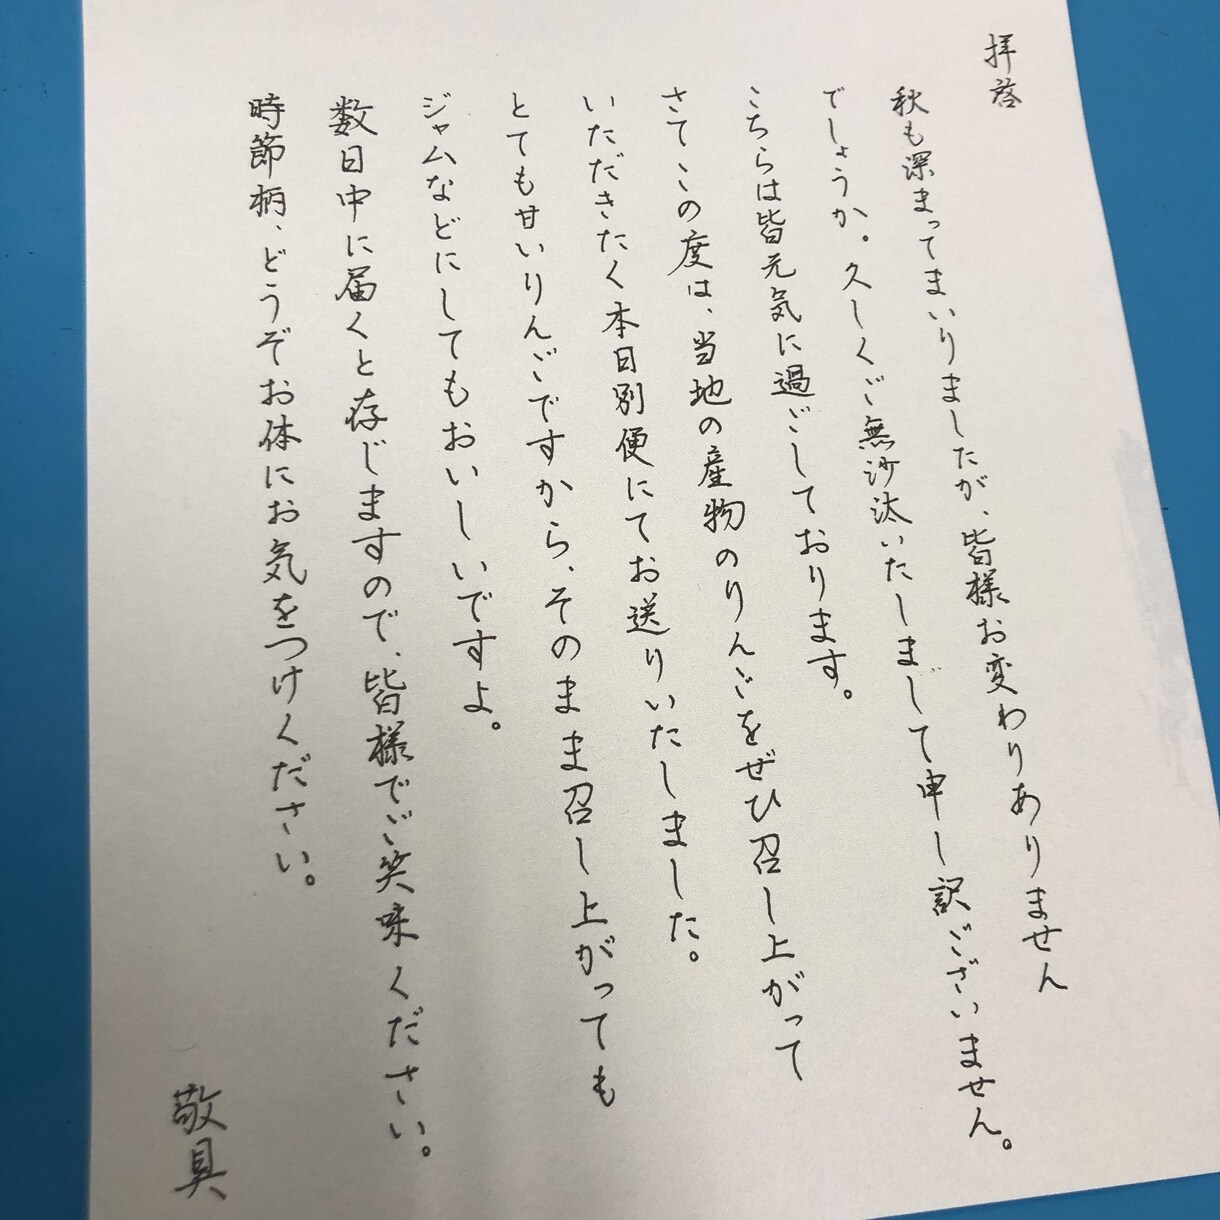 拝啓
秋も深まってまいりましたが、皆様お変わりありません
でしょうか。久しくご無沙汰いたしまして申し訳ございません。
こちらは皆元気に過ごしております。
さてこの度は、当地の産物のりんごをぜひ召し上がって
いただきたく本日別便にてお送りいたしました。
とても甘いりんごですから、そのまま召し上がっても
ジャムなどにしてもおいしいですよ。
数日中に届くと存じますので、皆様でご笑味ください。
時節柄、どうぞお体にお気をつけください。
敬具